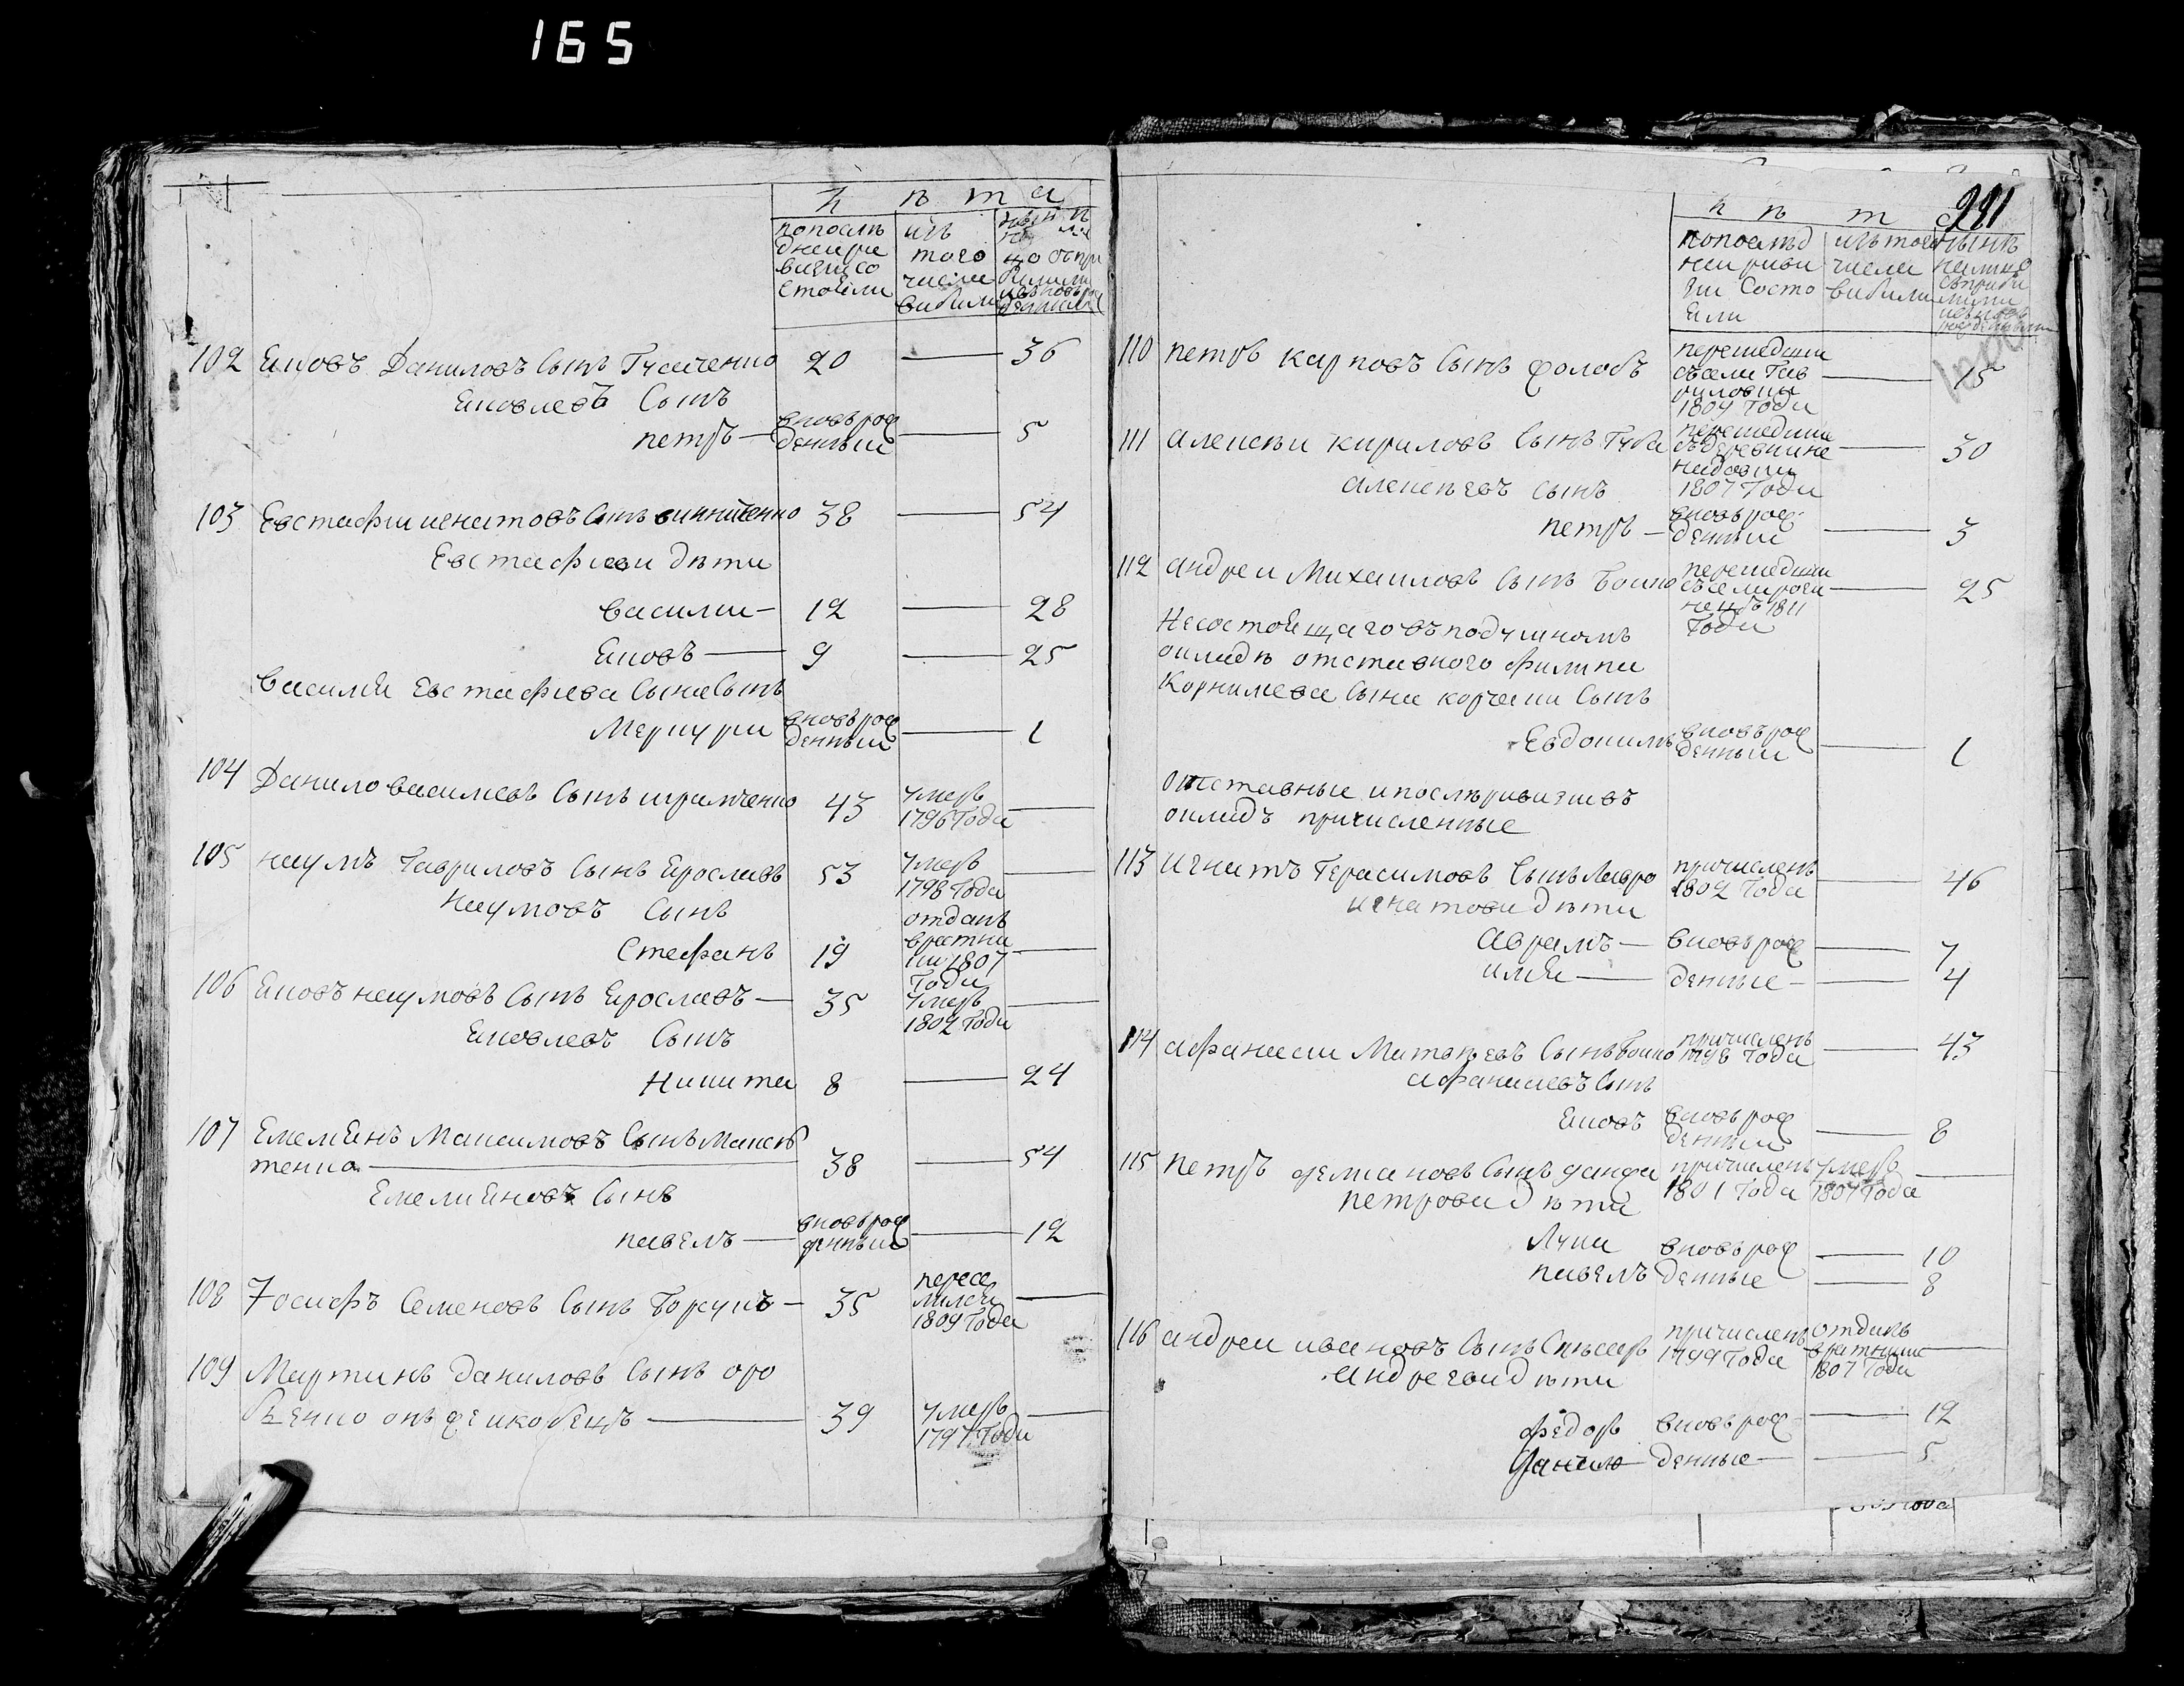 165
лѣта
попослѣ
дней ре
визїи со
стояли
изъ
того
числа
выбыли
нынѣ
на ли
цо съ при
былыми
102 Яковъ Даниловъ сынъ Гусаченко 20 — 36
Яковлевъ сынъ
петръ — вновьрож
денный — 5
103 Евстафии игнатовъ сынъ винниченко 38 — 54
Евстафиеви дѣти
василии — 12 — 28
Яковъ — 9 — 25
василия Евстафиева сына сынъ
Меркури вновьрож
денныи — 1
104 Данило василиевъ сынъ 43 умеръ
1796 Года —
105 наумъ Гавриловъ сынъ Ярославъ 53 умеръ
1798 Года —
Наумовъ сынъ
Стефанъ 19 отданъ
вратни
ки 1807
Года —
106 Яковъ наумовъ сынъ Ярославъ — 35 умеръ
1802 Года —
Яковлевъ сынъ
Никита 8 — 24
107 Емельянъ Максимовъ сынъ Максѣ
тенко — 38 — 54
Емелияновъ сынъ
павелъ — вновьрож
денныи — 12
108 Іосифъ Семеновъ сынъ — 35 пересе
лился
1809 Года —
109 Мартинъ Даниловъ сынъ
онъ же — 39 умеръ
1797 Года —
291
лѣта
попослѣд
неи реви
зіи состо
яли
изътого
числа
выбыли
нынѣ
налицо
съприбы
лыми
110 петръ карповъ сынъ фолобъ перешедши
съсела Гав
риловки
1804 Года — 15
111 алексѣи кириловъ сынъ Губа перешедши
съдеревни не
1807 Года — 30
алексѣевъ сынъ
петръ — вновьрож
денныи — 3
112 андреи Михаиловъ сынъ Бойко перешедши
1811
Года — 25
Несостоящаго въ подушномъ
окладѣ отставного филипа
Корнилиева сына корчаги сынъ
Евдокимъ вновьрож
денныи — 1
отставные и послѣ ревизии въ
окладъ причисленные
113 игнатъ Герасимовъ сынъ Лавро причисленъ
1802 Года — 46
игнатови дѣти
Аврамъ — вновьрож — 7
илья — денные — 4
114 афанасии Матвѣевъ сынъ Бойко причисленъ
1798 Года — 43
афанасиевъ сынъ
Яковъ вновьрож
денныи — 8
115 петръ демяновъ сынъ причисленъ
1801 Года умеръ
1807 Года —
петрови дѣти
Лука вновьрож — 10
павелъ денные — 8
116 андреи ивановъ сынъ причисленъ
1799 Года отданъ
вратники
1807 Года —
андрееви дѣти
федоръ вновьрож — 12
Данило денные — 5